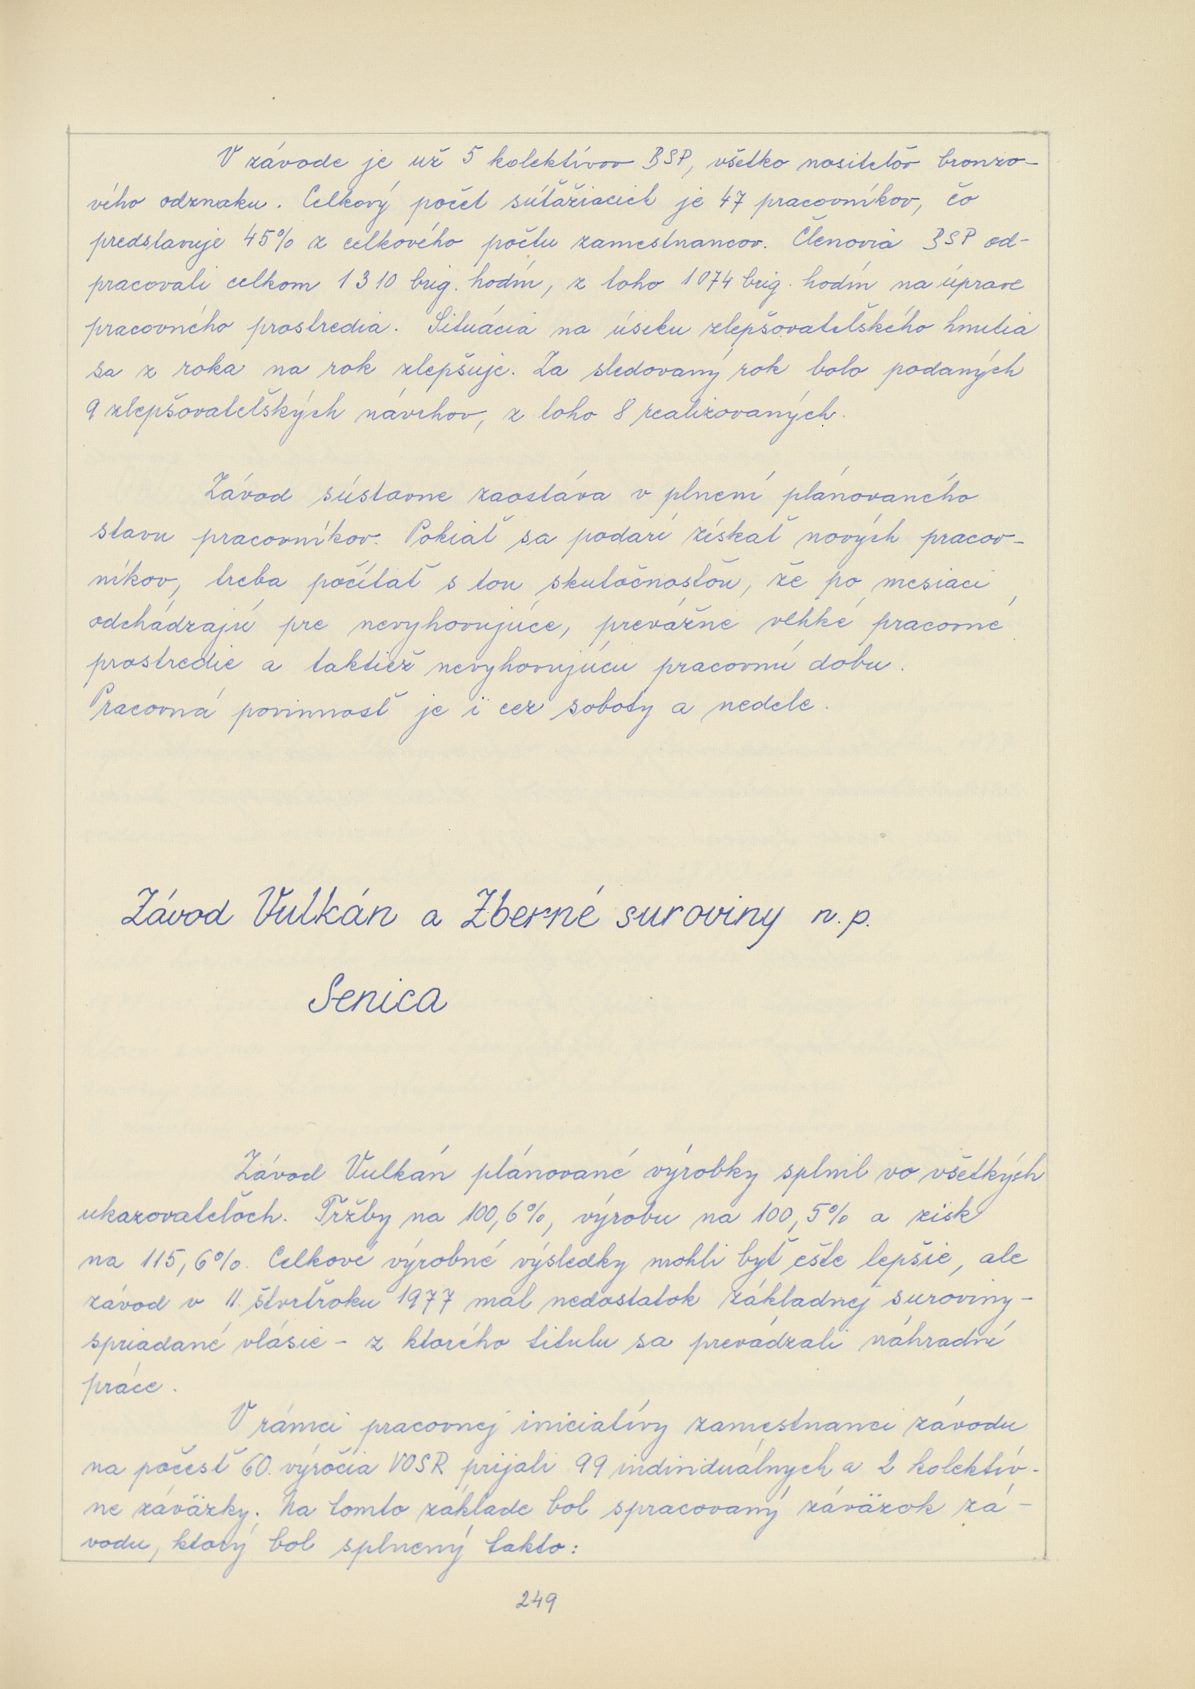 V závode je už 5 kolektívov BSP, všetko nositeľov bronzo-
vého odznaku. Celkový počet súťažiacich je 47 pracovníkov, čo
predstavuje 45% z celkového počtu zamestnancov. Členovia BSP od-
pracovali celkom 1310 brig. hodín, z toho 1074 brig. hodín na úprave
pracovného prostredia. Situácia na úseku zlepšovateľského hnutia
sa z roka na rok zlepšuje. Za sledovaný rok bolo podaných
9 zlepšovateľských návrhov, z toho 8 realizovaných.
Závod sústavne zaostáva v plnení plánovaného
stavu pracovníkov. Pokiaľ sa podarí získať nových pracov-
níkov, treba počítať s tou skutočnosťou, že po mesiaci
odchádzajú pre nevyhovujúce, prevážne vlhké pracovné
prostredie a taktiež nevyhovujúcu pracovnú dobu.
Pracovná povinnosť je i cez soboty a nedele.
Závod Vulkán a Zberné suroviny n.p.
Senica
Závod Vulkán plánované výrobky splnil vo všetkých
ukazovateľoch. Tržby na 100,6%, výrobu na 100,5% a zisk
na 115,6%. Celkové výrobné výsledky mohli byť ešte lepšie, ale
závod v II. štvrťroku 1977 mal nedostatok základnej suroviny-
spriadané vlásie - z ktorého titulu sa prevádzali náhradné
práce.
V rámci pracovnej iniciatívy zamestnanci závodu
na počesť 60. výročia VOSR prijali 99 individuálnych a 2 kolektív-
ne záväzky. Na tomto základe bol spracovaný záväzok zá-
vodu, ktorý bol splnený takto:
249